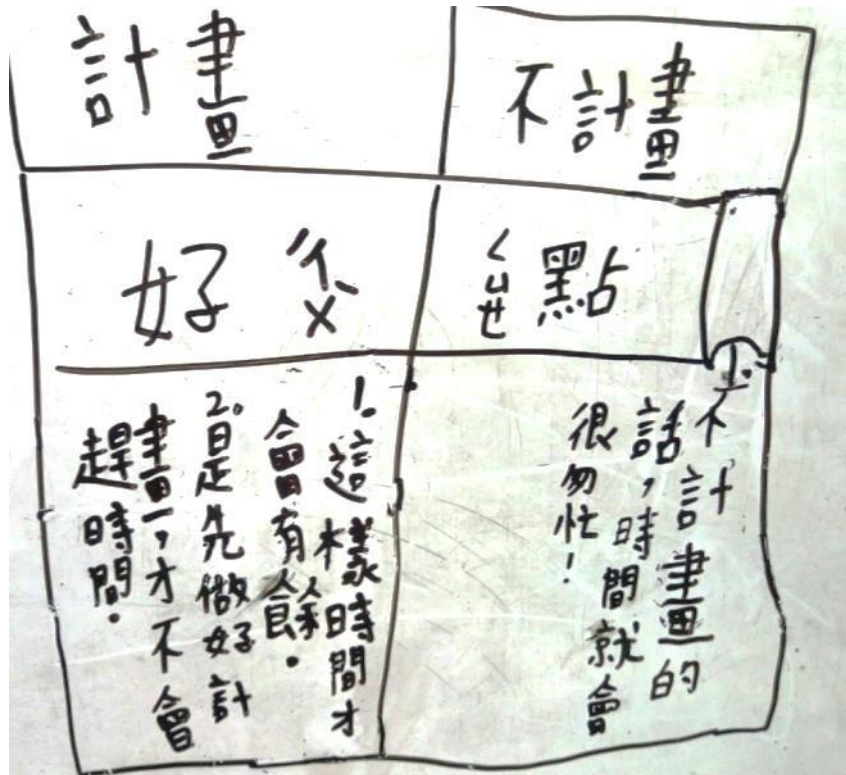 計畫
不計畫
好
ㄑㄩㄝ點
1.這樣時間才
會有餘。
2.是先做好計
畫,才不會
趕時間.
1.不計畫的
話,時間就會
很勿忙!